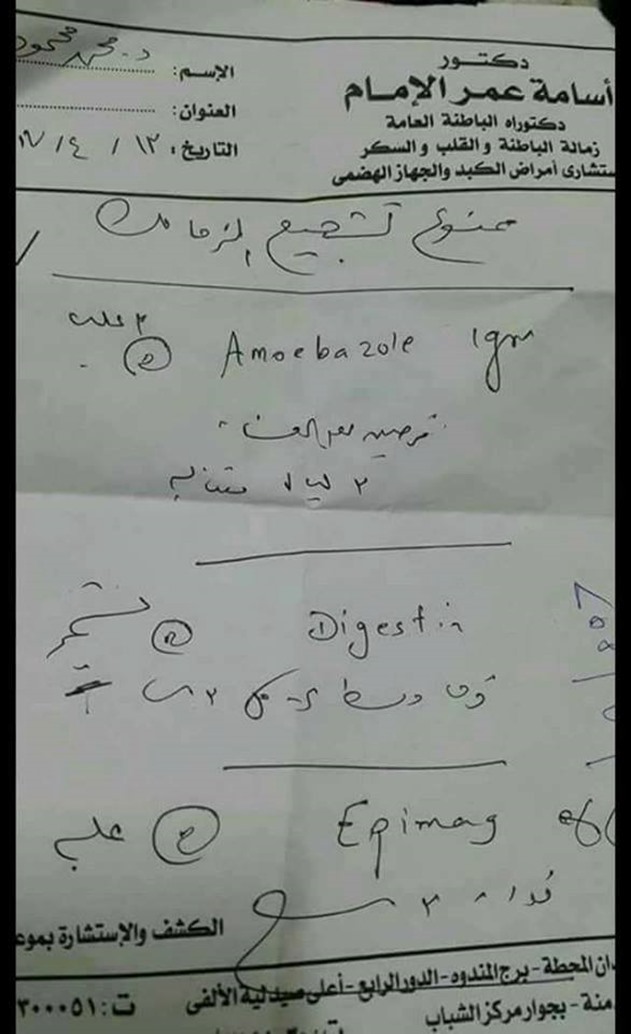 دكتور
أسامة عمر الإمام
دكتوراه الباطنة العامة
زمالة الباطنة و القلب و السكر
ستشارى أمراض الكبد والجهاز الهضمى
الإسم: د. محمد محمود
العنوان:
التاريخ: ١٢ / ٤ /
ممنوع تشجيع الزمالك
Amoebazole 1gm
٢ علب
قرصين بعد العشاء
٢ ليال متتالية
Digestin
يستمر
قرص وسط الأكل ٣
Epimag eff
علبة
فوار ٣
الكشف والإستشارة بموع
دان المحطة - برج المندوه - الدور الرابع - أعلى صيدلية الألفى
منة - بجوار مركز الشباب
ت: ٣٠٠٠٥١